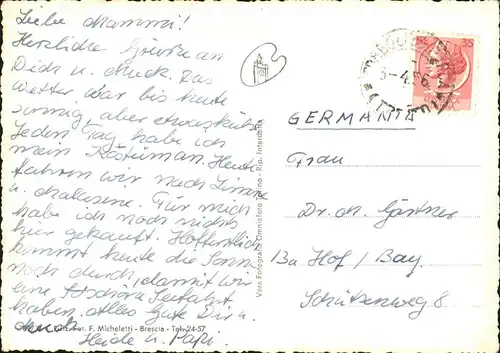 Liebe Mammi!
Herzliche Grüße an
Dich u. Muck. Das
Wetter war bis heute
sonnig, aber etwas kühl.
Jeden Tag habe ich
mein Kostüm an. Heute
fahren wir nach Limone
u. Malcesine. Für mich
habe ich noch nichts
hier gekauft. Hoffentlich
kommt heute die Sonne
noch durch, damit wir
eine schöne Seefahrt
haben. Alles Gute Dir u.
Muck
Heide u. Papi
F. Micheletti - Brescia - Tel. 24-57
Vera Fotografia Omniafoto Torino - Rip. Interdetta
35
GERMANIA
Frau
Dr. M. Gärtner
13a Hof / Bay.
Schützenweg 8